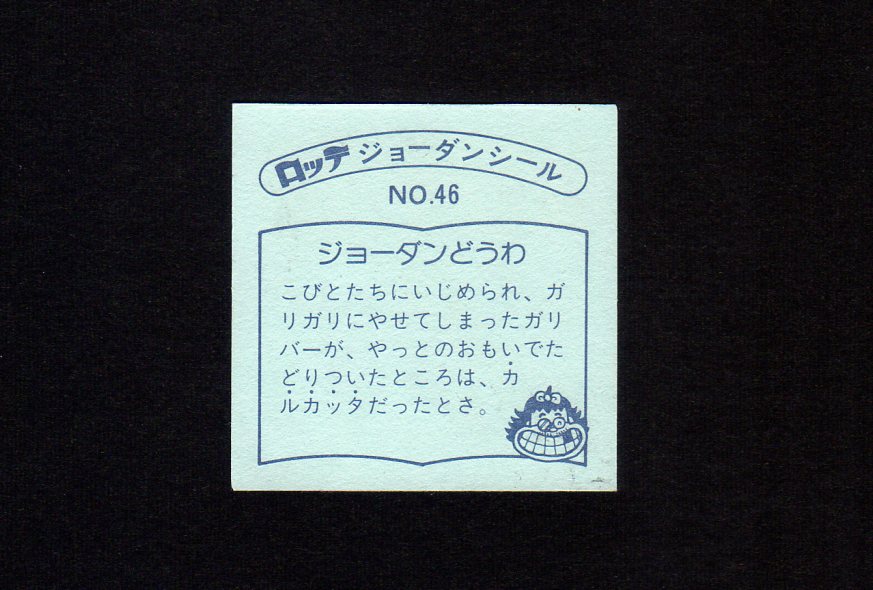 ロッテ ジョーダンシール
NO.46
ジョーダンどうわ
こびとたちにいじめられ、ガ
リガリにやせてしまったガリ
バーが、やっとのおもいでた
どりついたところは、カ
ルカッタだったとさ。